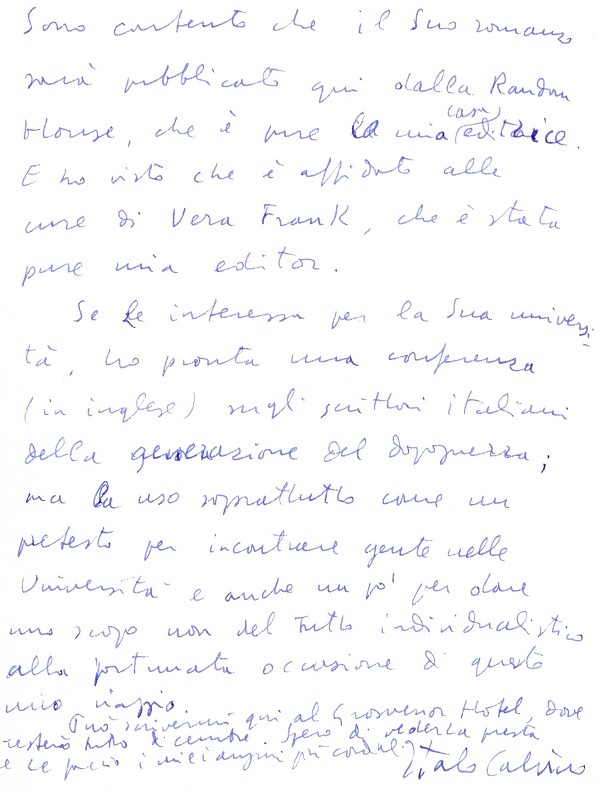 Sono contento che il Suo romanzo
sarà pubblicato qui dalla Random
House, che è pure la mia (casa) editrice.
E ho visto che è affidato alle
cure di Vera Frank, che è stata
pure mia editor.
Se Le interessa per la Sua universi-
tà, ho pronta una conferenza
(in inglese) sugli scrittori italiani
della generazione del dopoguerra;
ma la uso soprattutto come un
pretesto per incontrare gente nelle
Università e anche un po' per dare
uno scopo non del tutto individualistico
alla fortunata occasione di questo
mio viaggio.
Può scrivermi qui al Grosvenor Hotel, dove
resterò tutto dicembre. Spero di vederLa presto
e Le faccio i miei auguri più cordiali.
Italo Calvino